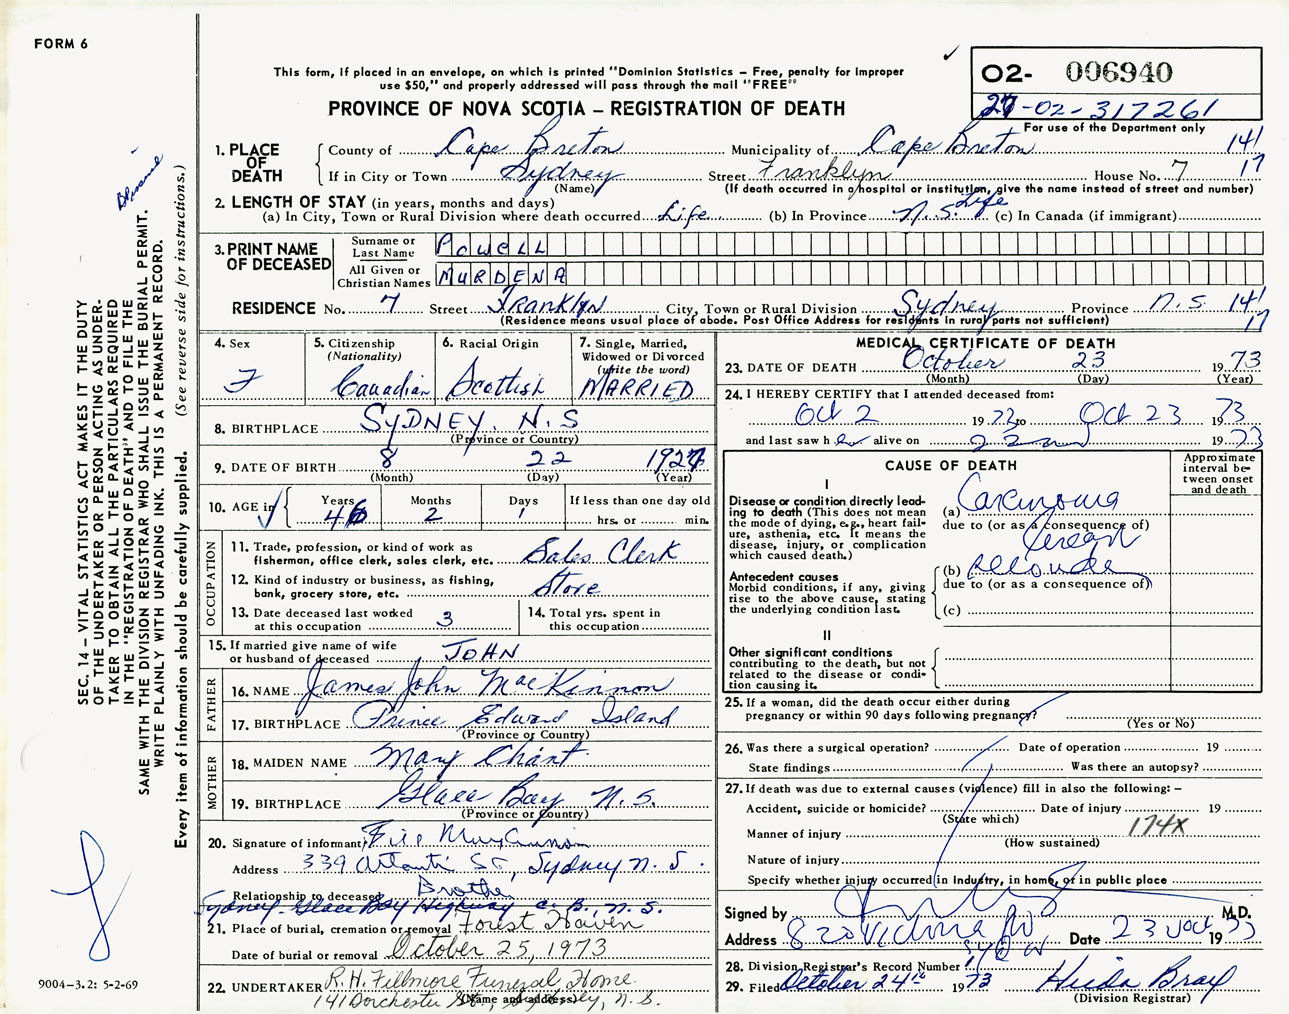 FORM 6
This form, if placed in an envelope, on which is printed "Dominion Statistics – Free, penalty for improper
use $50," and properly addressed will pass through the mail "FREE"
PROVINCE OF NOVA SCOTIA – REGISTRATION OF DEATH
02- 006940
27-02-317261
For use of the Department only
1. PLACE OF DEATH
County of Cape Breton Municipality of Cape Breton 141
If in City or Town Sydney Street Franklyn House No. 7 17
(Name) (If death occurred in a hospital or institution, give the name instead of street and number)
2. LENGTH OF STAY (in years, months and days)
(a) In City, Town or Rural Division where death occurred Life (b) In Province N.S. Life (c) In Canada (if immigrant)
3. PRINT NAME OF DECEASED
Surname or Last Name POWELL
All Given or Christian Names MURDENA
RESIDENCE No. 7 Street FRANKLYN City, Town or Rural Division Sydney Province N.S. 141
(Residence means usual place of abode. Post Office Address for residents in rural parts not sufficient) 17
4. Sex F
5. Citizenship (Nationality) Canadian
6. Racial Origin Scottish
7. Single, Married, Widowed or Divorced (write the word) MARRIED
8. BIRTHPLACE SYDNEY, N.S
(Province or Country)
9. DATE OF BIRTH 8 22 1927
(Month) (Day) (Year)
10. AGE in Years 46 Months 2 Days 1 If less than one day old
hrs. or min.
OCCUPATION
11. Trade, profession, or kind of work as fisherman, office clerk, sales clerk, etc. Sales Clerk
12. Kind of industry or business, as fishing, bank, grocery store, etc. Store
13. Date deceased last worked at this occupation 3
14. Total yrs. spent in this occupation
15. If married give name of wife or husband of deceased JOHN
FATHER
16. NAME James John MacKinnon
17. BIRTHPLACE Prince Edward Island
(Province or Country)
MOTHER
18. MAIDEN NAME Mary Chant
19. BIRTHPLACE Glace Bay N.S.
(Province or Country)
20. Signature of informant
Address 339 Atlantic St, Sydney N.S.
Relationship to deceased Brother
Sydney-Glace Bay Highway C.B., N.S.
21. Place of burial, cremation or removal Forest Haven
Date of burial or removal October 25, 1973
22. UNDERTAKER R.H. Fillmore Funeral Home
141 Dorchester St., Sydney, N.S.
(Name and address)
MEDICAL CERTIFICATE OF DEATH
23. DATE OF DEATH October 23 1973
(Month) (Day) (Year)
24. I HEREBY CERTIFY that I attended deceased from:
Oct 2 1972 to Oct 23 1973
and last saw her alive on 22 1973
CAUSE OF DEATH
Approximate interval between onset and death
I
Disease or condition directly leading to death (This does not mean the mode of dying, e.g., heart failure, asthenia, etc. It means the disease, injury, or complication which caused death.)
(a) Carcinoma
due to (or as a consequence of)
breast
Antecedent causes
Morbid conditions, if any, giving rise to the above cause, stating the underlying condition last.
(b)
due to (or as a consequence of)
(c)
II
Other significant conditions contributing to the death, but not related to the disease or condition causing it.
25. If a woman, did the death occur either during pregnancy or within 90 days following pregnancy?
(Yes or No)
26. Was there a surgical operation? Date of operation 19
State findings Was there an autopsy?
27. If death was due to external causes (violence) fill in also the following: –
Accident, suicide or homicide? Date of injury 19
(State which)
Manner of injury 174X
(How sustained)
Nature of injury
Specify whether injury occurred in industry, in home, or in public place
Signed by M.D.
Address 820 Victoria Rd Date 23 Oct 1973
28. Division Registrar's Record Number
29. Filed October 24th 1973
(Division Registrar)
SEC. 14 – VITAL STATISTICS ACT MAKES IT THE DUTY
OF THE UNDERTAKER OR PERSON ACTING AS UNDER-
TAKER TO OBTAIN ALL THE PARTICULARS REQUIRED
IN THE "REGISTRATION OF DEATH" AND TO FILE THE
SAME WITH THE DIVISION REGISTRAR WHO SHALL ISSUE THE BURIAL PERMIT.
WRITE PLAINLY WITH UNFADING INK. THIS IS A PERMANENT RECORD.
Every item of information should be carefully supplied. (See reverse side for instructions.)
9004-3.2: 5-2-69